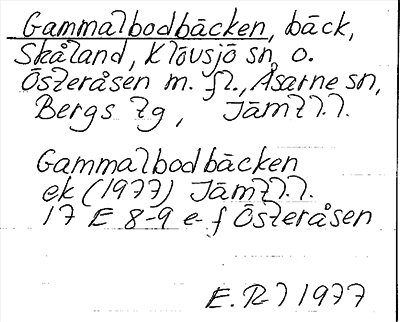 Gammalbodbäcken, bäck,
Skåland, Klövsjö sn, o.
Österåsen m. fl., Åsarne sn,
Bergs tg, Jämtl.
Gammalbodbäcken
ek (1977) Jämtl.
17 E 8-9 e-f Österåsen
E. R 1977